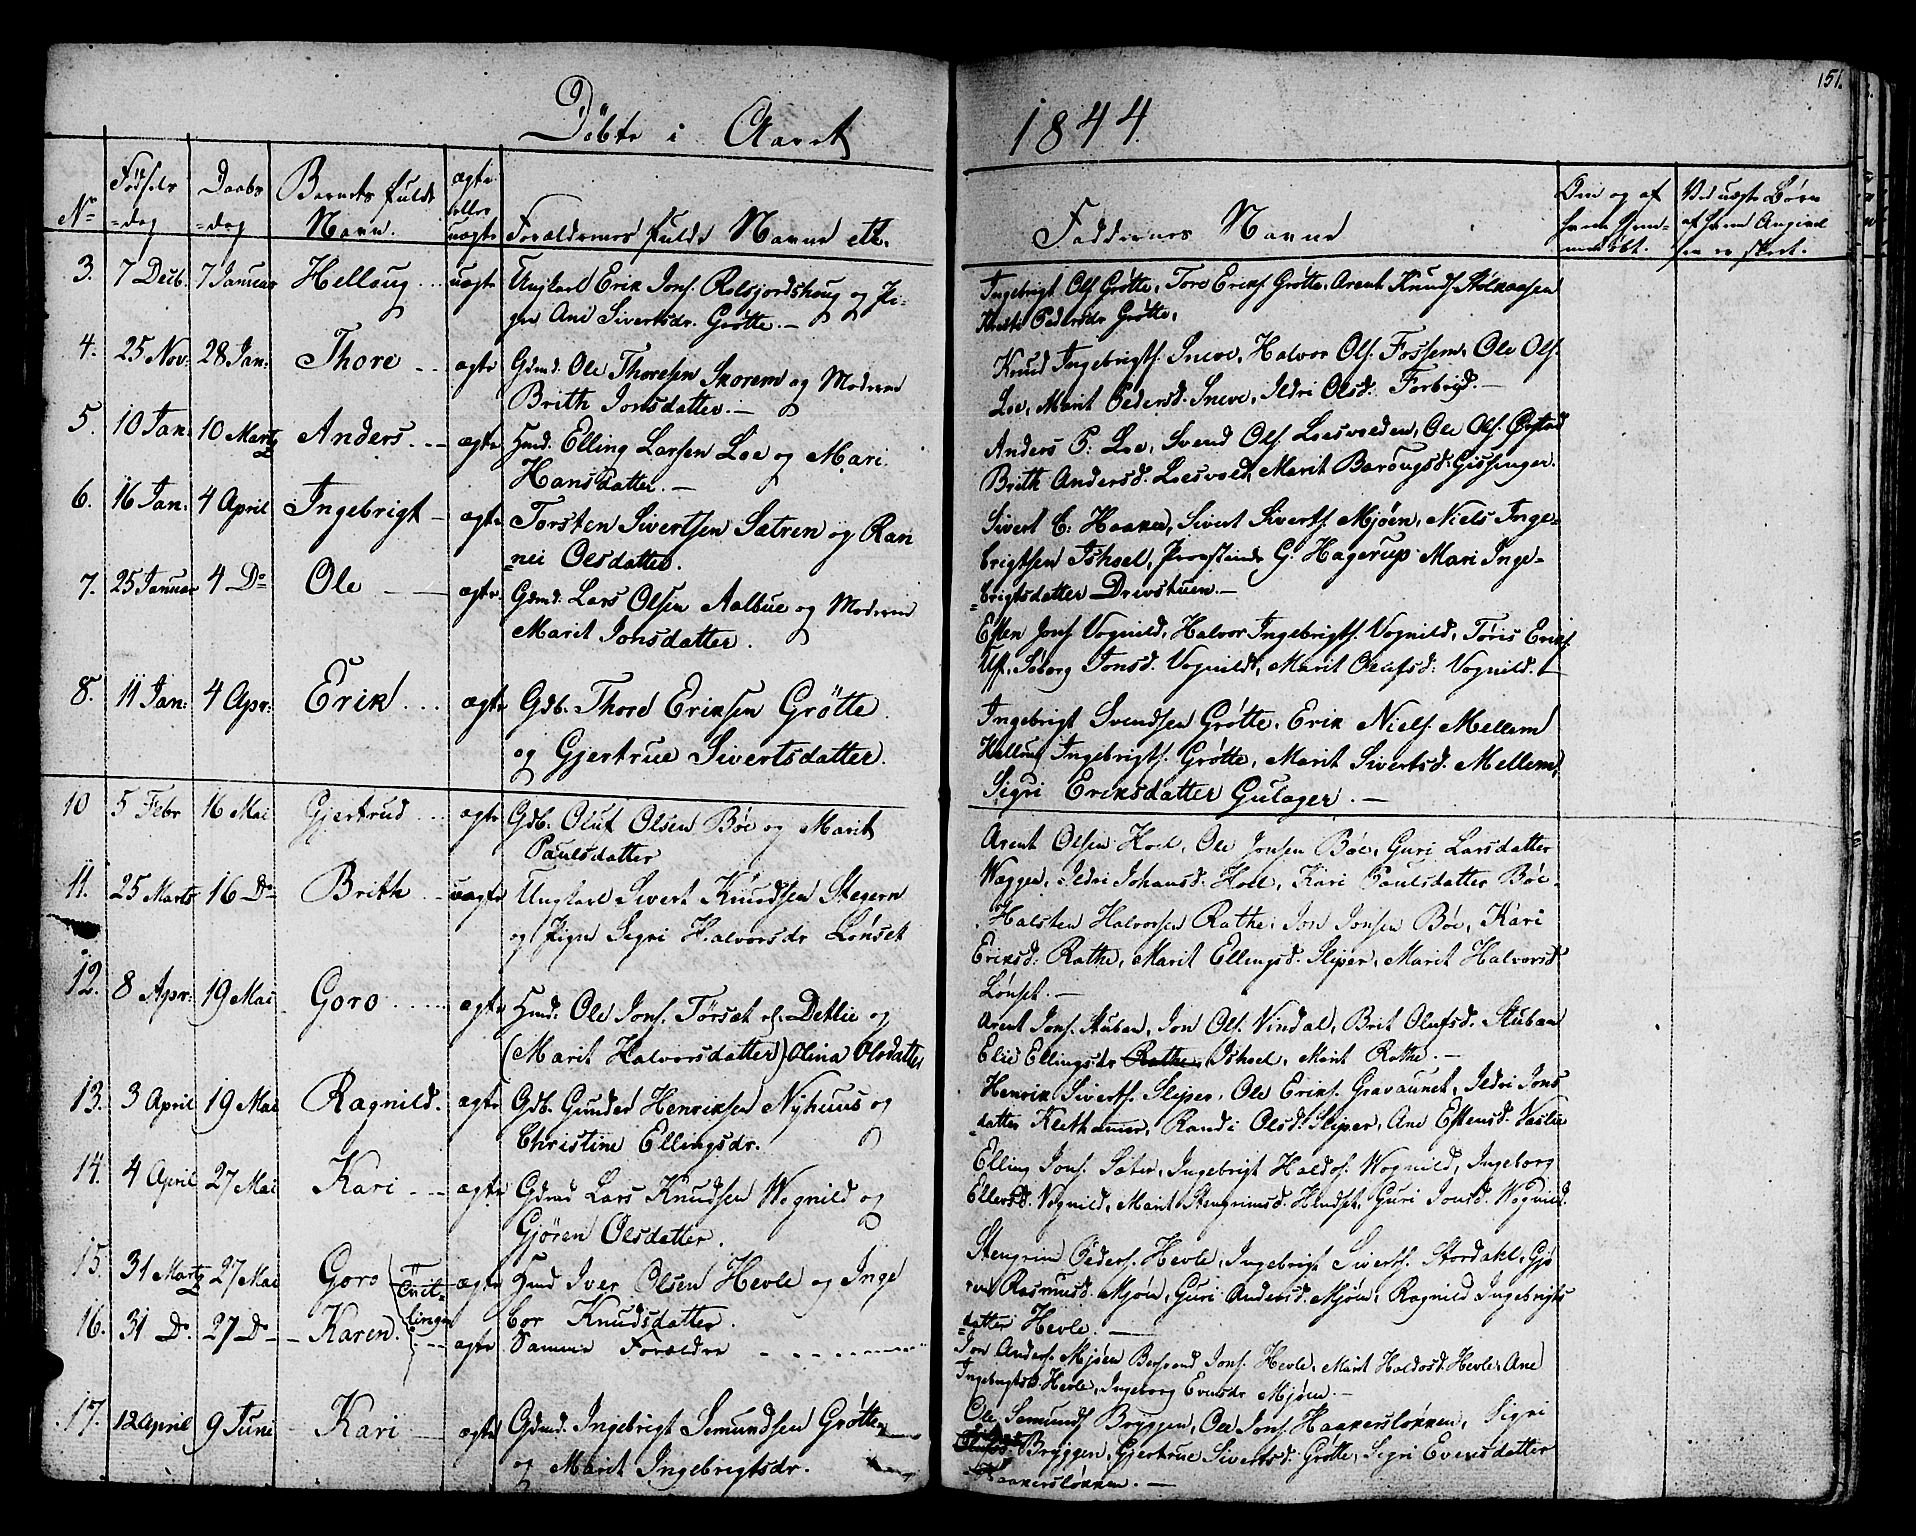 Döbte i Aaret
1844.
151.
No
Fødsels
-dag
Daabs
-dag
Barnets fulde
Navn.
ægte
eller
uægte
Forældrenes fulde Navne etc.
Faddernes Navne
Om og af
hvem hjem-
medøbt.
Ved uægte Børn
af hvem Angivel
sen er skeet.
3. 7 Decb. 7 Januar Hellaug uægte Ungkarl Erik Jons. Rolsjordshoug og Pi-
ge Ani Sivertsdr. Grøtte.
Ingebrigt Ols. Grøtte, Tore Eriks. Grøtte, Arent Knuds.
Pedersdr. Grøtte,
4. 25 Nov: 28 Jan: Thore ægte Gdmd: Ole Thoresen Skorem og Moderen
Brith Jonsdatter.
Knud Ingebrigts. Sneve, Halvor Ols. Fossem, Ole Ols.
Loe, Marit Pedersd. Sneve, Ildri Olsd. Forbrigd.
5. 10 Jan. 10 Martz Anders ægte Hmd. Elling Larsen Loe og Mari
Hansdatter.
Anders P. Loe, Svend Ols. Loesvolden, Ole Ols. Ørstad
Brith Andersd. Loesvold, Marit Barougsd. Gissinger.
6. 16 Jan: 4 April Ingebrigt ægte Torsten Sivertsen Sætren og Ran
nei Olsdatter.
Sivert E. Haaker, Sivert Siverts. Mjøen, Niels Inge-
brigtsen Ishoel, Provstinde G. Hagerup Mari Inge-
brigtsdatter Drivstuen.
7. 25 Januar 4 Do Ole ægte Gdmd: Lars Olsen Aalbue og Moderen
Marit Jonsdatter.
Esten Jons. Vognild, Halvor Ingebrigts. Vognild, Tøris Eriks.
Uf, Søborg Jonsd. Vognild, Marit Olufsd: Vognild.
8. 11 Jan: 4 Apr: Erik ægte Gdb. Thore Eriksen Grötte
og Gjertrue Sivertsdatter.
Ingebrigt Svendsen Grøtte, Erik Niels. Mellem
Hellaug Ingebrigts. Grøtte, Marit Sivertsd. Mellem,
Sigri Eriksdatter Gulager.
10 5 Febr 16 Mai Gjertrud ægte Gdb. Oluf Olsen Böe og Marit
Paulsdatter
Arent Olsen Hoel, Ole Jonsen Böe, Guri Larsdatter
Waggen, Ildri Johansd. Hoel, Kari Paulsdatter Böe
11. 25 Marts 16 Do Brith uægte Ungkarl Sivert Knudsen Stegern
og Pigen Sigri Halvorsdr Lönset
Halsten Halvorsen Rathe, Jon Jonsen Böe, Kari
Eriksd: Rathe, Marit Ellingsd. Sliper, Marit Halvorsd
Lönset.
12. 8 Apr: 19 Mai Goro ægte Hmd. Ole Jons. Törset el. Detlie og
(Marit Halvorsdatter) Olina Olsdatter
Arent Jons. Stuban, Jon Ols. Vindal, Brit Olufsd. Stuban
Elie Ellingsdr Rathe, Ishoel, Marit Rathe.
13. 3 April 19 Mai Ragnild. ægte Gdb. Gunder Henriksen Nyhuus og
Christine Ellingsdr.
Henrik Siverts. Sliper, Ole Eriks. Gravaunet, Ildri Jons
datter Klethamer, Randi Olsd. Sliper, Ane Estensd. Vaslie
14. 4 April 27 Mai Kari ægte Gdmd Lars Knudsen Wognild og
Gjøren Olsdatter.
Elling Jons. Sæter, Ingebrigt Haldos. Wognild, Ingeborg
Ellersd. Vognild, Marit Stengrimsd. Hindset, Guri Jonsd. Wognild.
15. 31 Martz 27 Mai Goro (Tvil- ægte Hmd Iver Olsen Hevle og Inge
lingr
bor Knudsdatter.
Stengrim Peders. Hevle, Ingebrigt Siverts. Stordahl, Gjö
ren Rasmusd. Mjøn, Guri Andersd. Mjön, Ragnild Ingebrigts
datter Hevle.
16. 31 D. 27 D Karen. ægte Samme Forældre
Jon Anders. Mjøen Bersvend Jons. Hevle, Marit Haldosd. Hevle, Ane
Ingebrigtsd. Hevle, Ingeborg Evensdr Mjøen.
17. 12 April 9 Juni Kari ægte Gdmd. Ingebrigt Semundsen Grøtte
og Marit Ingebrigtsdr.
Ole Semunds Bryggen, Ole Jons. Haakersløkken, Sigri
Bryggen, Gjertrue Sivertsd. Grøtte, Sigri Evensdatter
Haakersløkken.